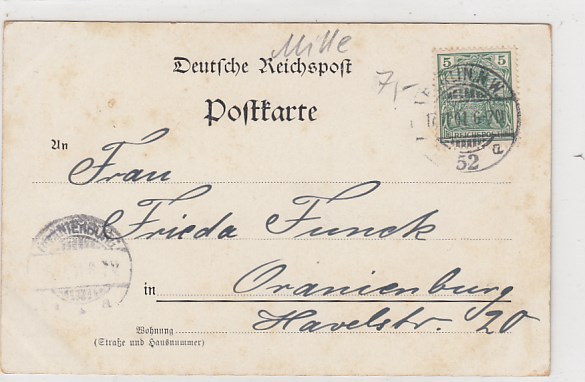 Mille
Deutsche Reichspost
7,-
Postkarte
5 5
REICHSPOST
BERLIN N.W.
6-7N
52
a
An Frau
Frieda Funck
ORANIENBURG
in Oranienburg
Havelstr. 20
Wohnung
(Straße und Hausnummer)